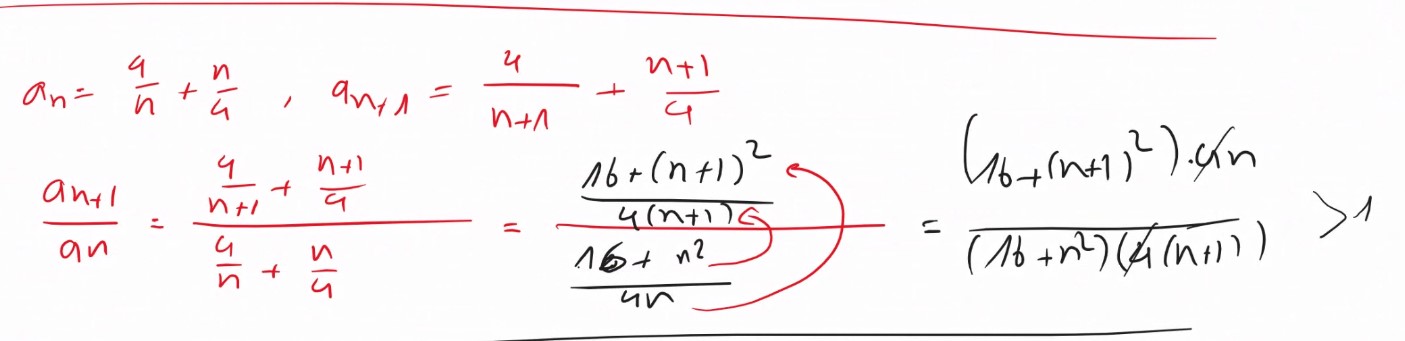 an = 4/n + n/4 , an+1 = 4/(n+1) + (n+1)/4
an+1/an = (4/(n+1) + (n+1)/4)/(4/n + n/4) = ((16+(n+1)²)/(4(n+1)))/((16+n²)/(4n)) = ((16+(n+1)²).4n)/((16+n²)(4(n+1))) >1